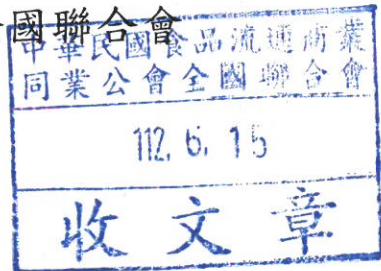 國聯合會
中華民國食品流通商業
同業公會全國聯合會
112. 6. 15
收文章